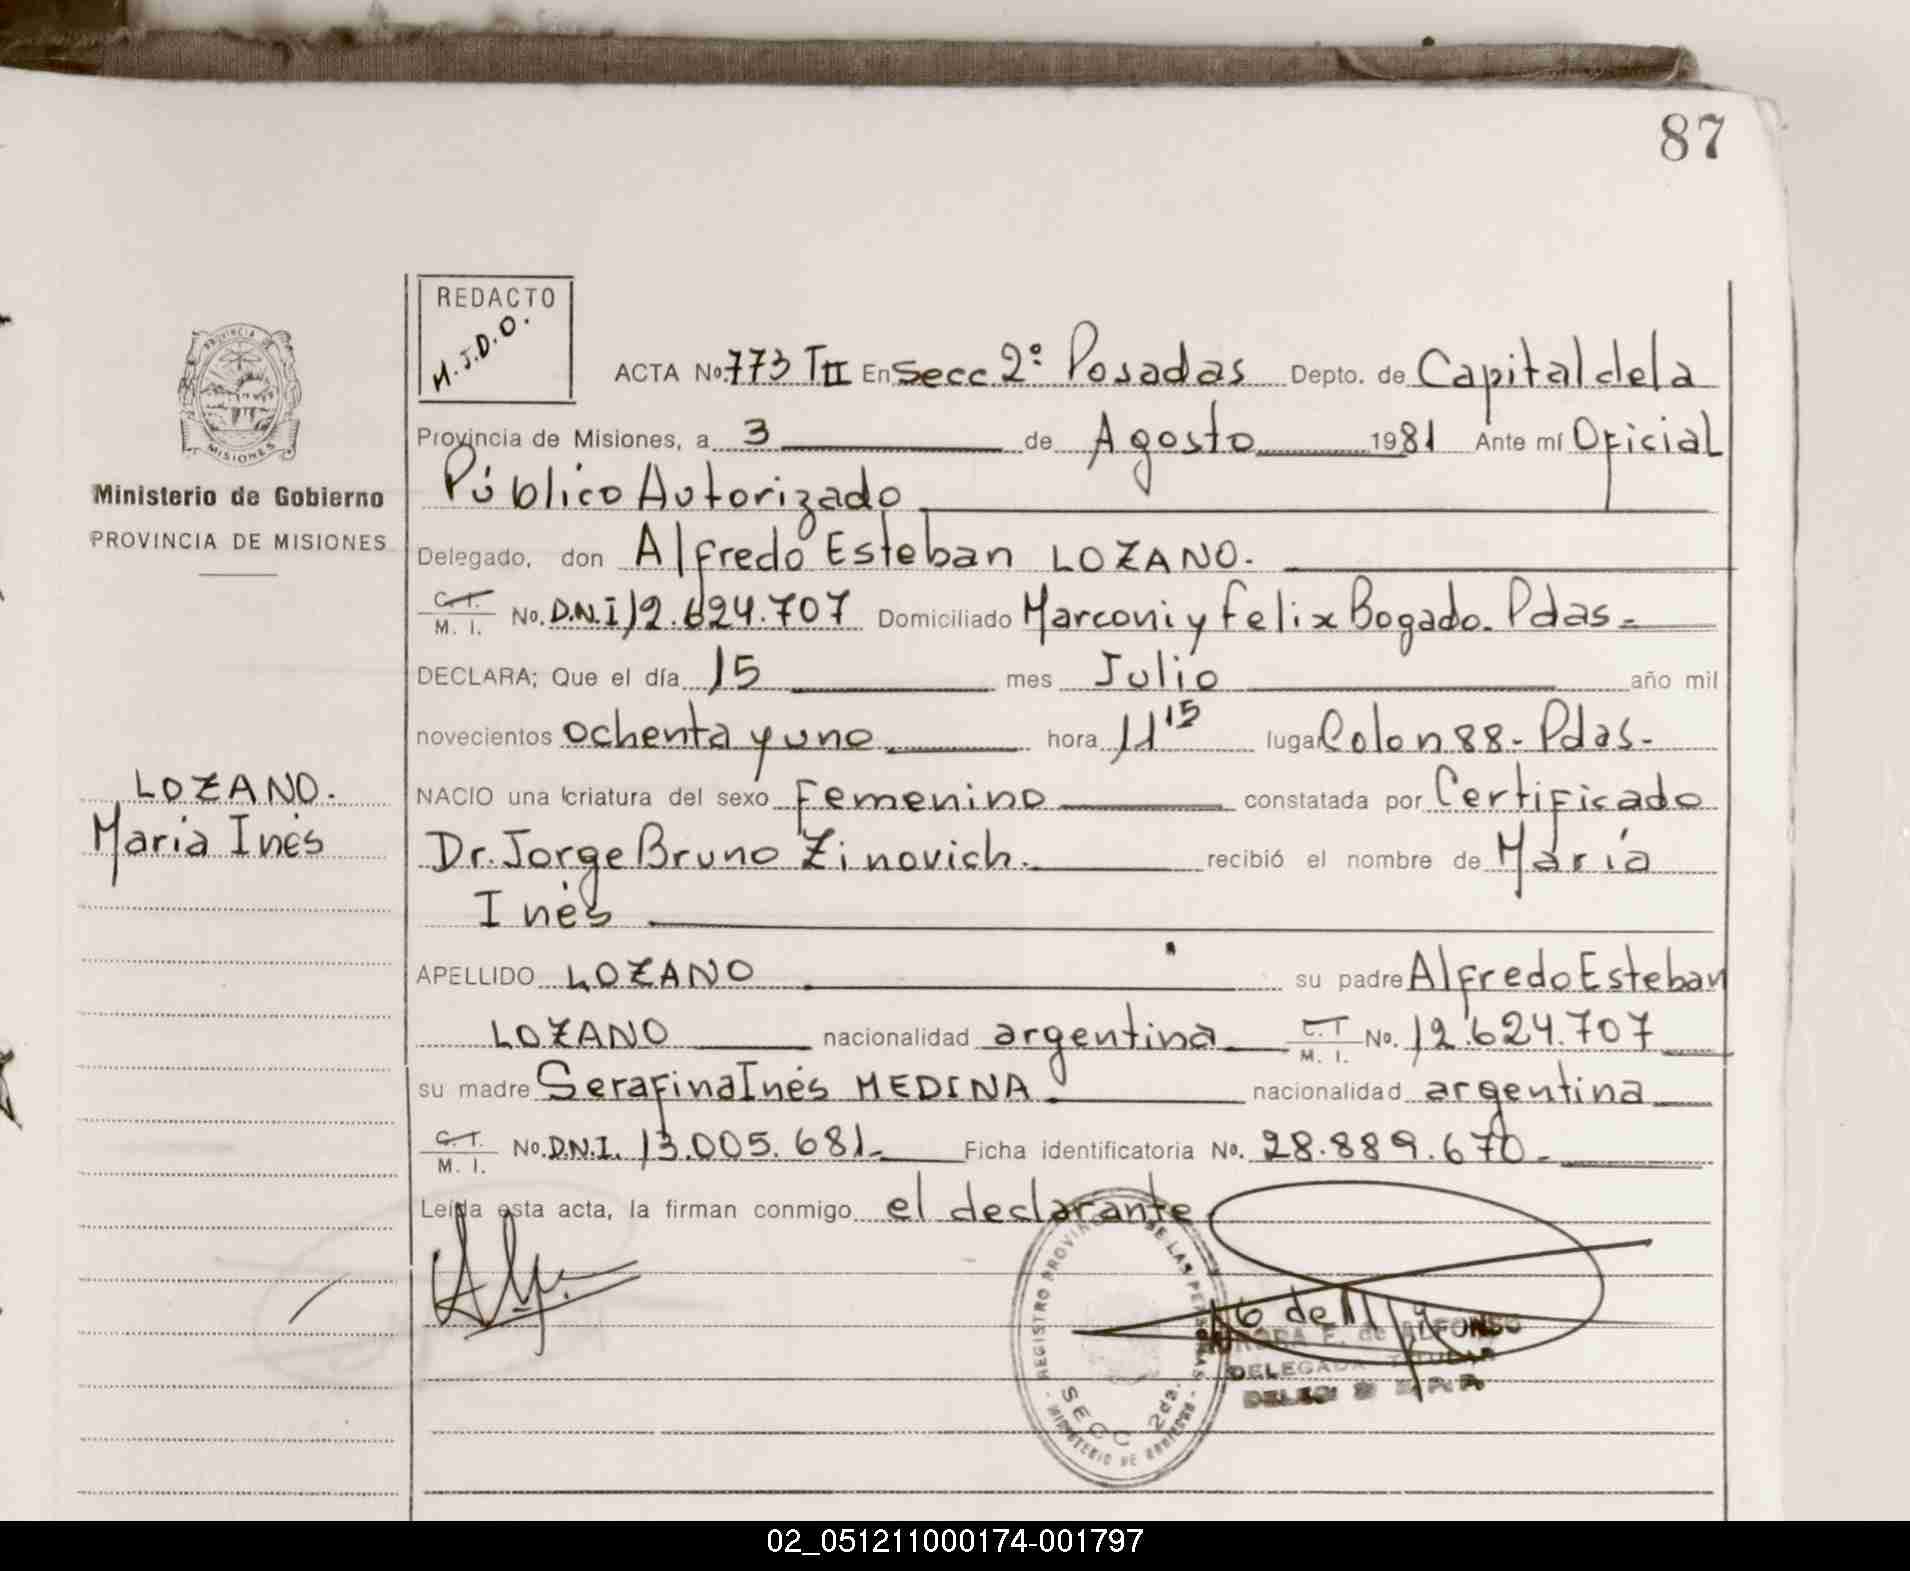 87
REDACTO
H.J.D.O.
ACTA No. 773 TII En Secc 2º Posadas Depto. de Capital de la
Provincia de Misiones, a 3 de Agosto 1981 Ante mí Oficial
Público Autorizado
Delegado, don Alfredo Esteban LOZANO.
C.T. M. I. No. D.N.I 12.624.707 Domiciliado Marconi y Felix Bogado. Pdas.
DECLARA; Que el día 15 mes Julio año mil
novecientos ochenta y uno hora 11 15 lugar Colon 88 - Pdas.
NACIO una criatura del sexo Femenino constatada por Certificado
Dr. Jorge Bruno Zinovich. recibió el nombre de María
Inés
APELLIDO LOZANO su padre Alfredo Esteban
LOZANO nacionalidad argentina C.T M. I. No. 12.624.707
su madre Serafina Inés MEDINA nacionalidad argentina
C.T. M. I. No. D.N.I. 13.005.681 Ficha identificatoria No. 28.889.670
Leída esta acta, la firman conmigo el declarante
PROVINCIA DE
MISIONES
Ministerio de Gobierno
PROVINCIA DE MISIONES
LOZANO.
María Inés
REGISTRO PROVINCIAL DE LAS PERSONAS
SECC 2da.
MINISTERIO DE GOBIERNO
de ALFONSO
DELEGADA TITULAR
02_051211000174-001797